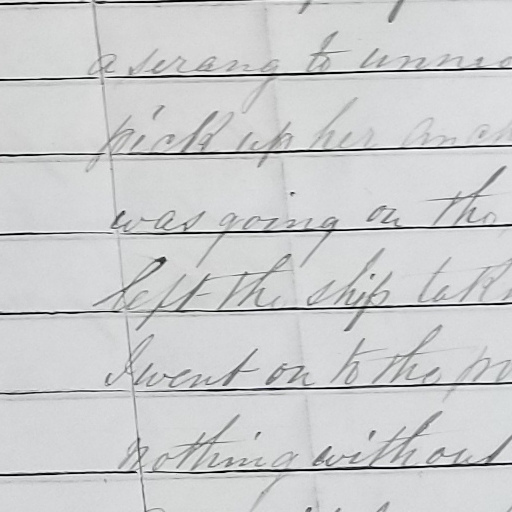 a serang to
pick up her
was going on the
left the ship
I went on to the
nothing without